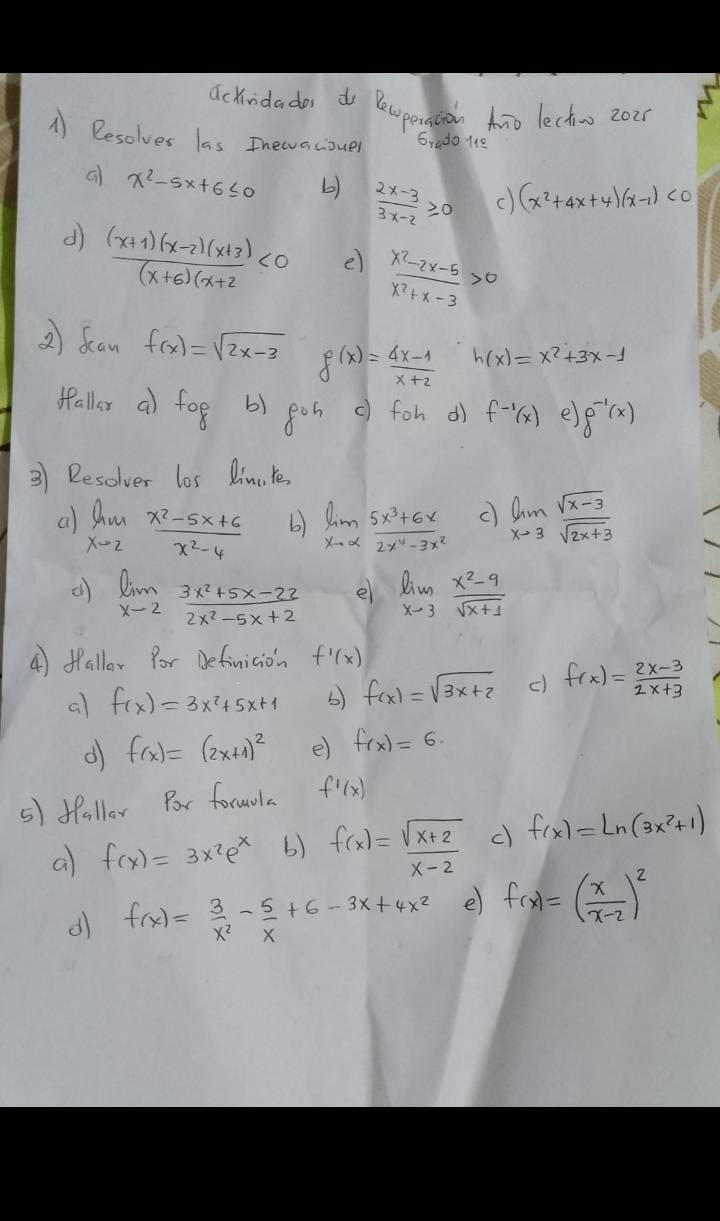 Actividades de Recuperación Año lectivo 2025
Grado 11º
1) Resolver las Inecuaciones
a) x²-5x+6≤0 b) (2x-3)/(3x-2) ≥0 c) (x²+4x+4)(x-1)<0
d) ((x+1)(x-2)(x+3))/((x+6)(x+2) <0 e) (x²-2x-5)/(x²+x-3) >0
2) Sean f(x)=√(2x-3) g(x)=(4x-1)/(x+2) h(x)=x²+3x-1
Hallar a) fog b) goh c) foh d) f⁻¹(x) e) g⁻¹(x)
3) Resolver los límites
a) lim x→2 (x²-5x+6)/(x²-4) b) lim x→∝ (5x³+6x)/(2x⁴-3x²) c) lim x→3 √(x-3)/√(2x+3)
d) lim x→2 (3x²+5x-22)/(2x²-5x+2) e) lim x→3 (x²-9)/√(x+1)
4) Hallar Por Definición f'(x)
a) f(x)=3x²+5x+1 b) f(x)=√(3x+2) c) f(x)=(2x-3)/(2x+3)
d) f(x)=(2x+1)² e) f(x)=6.
5) Hallar Por formula f'(x)
a) f(x)=3x²eˣ b) f(x)=√(x+2)/(x-2) c) f(x)=Ln(3x²+1)
d) f(x)=3/x²-5/x+6-3x+4x² e) f(x)=(x/(x-2))²